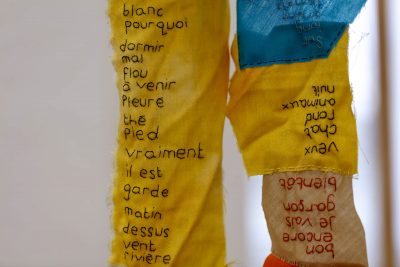 blanc
pourquoi
dormir
mal
flou
à venir
Pleure
thé
Pied
vraiment
il est
garde
matin
dessus
vent
rivière
bon
encore
je vais
garçon
bientôt
veux
chat
fond
animaux
nuit